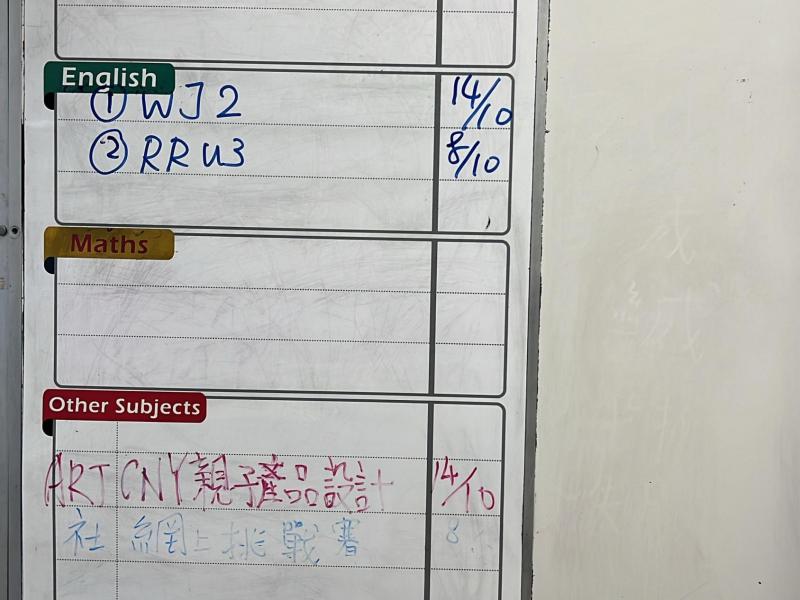 English
① WJ2 14/10
② RRU3 8/10
Maths
Other Subjects
ART CNY親子產品設計 14/10
社 網上挑戰賽 8